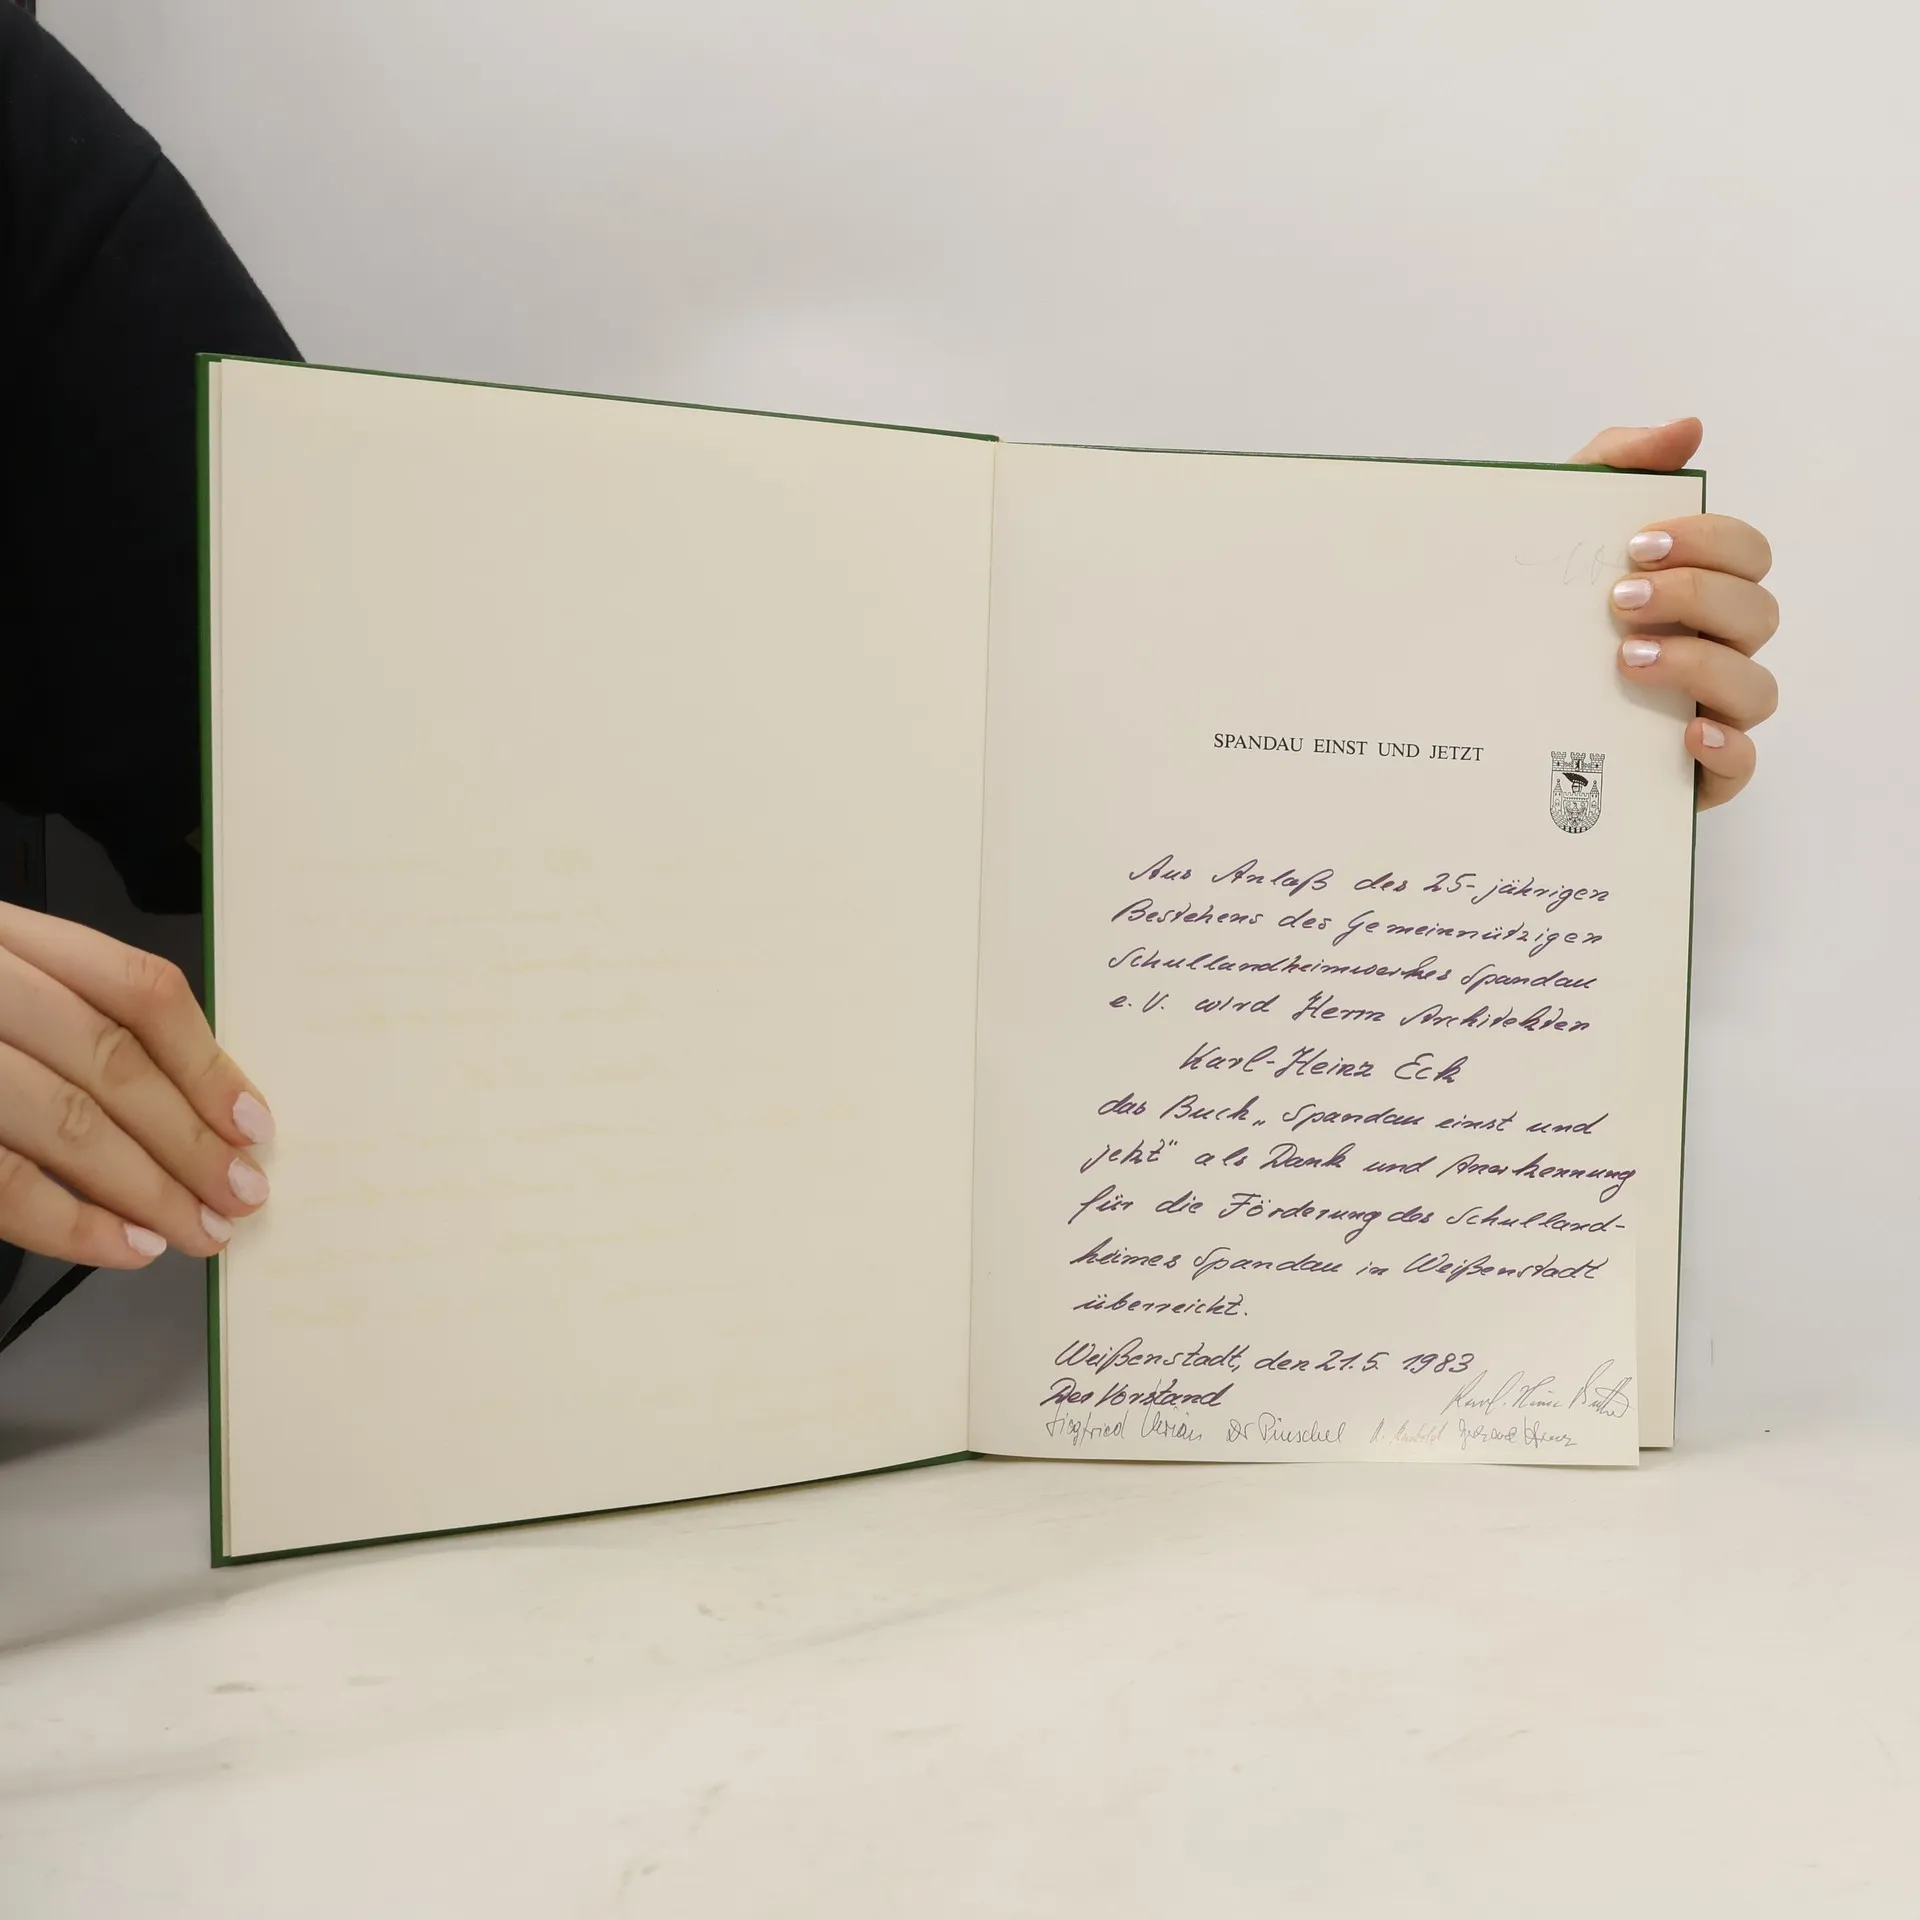 SPANDAU EINST UND JETZT
Aus Anlaß des 25-jährigen
Bestehens des Gemeinnützigen
Schullandheimwerkes Spandau
e. V. wird Herrn Architekten
Karl-Heinz Eck
das Buch „Spandau einst und
jetzt" als Dank und Anerkennung
für die Förderung des Schulland-
heimes Spandau in Weißenstadt
überreicht.
Weißenstadt, den 21.5. 1983
Der Vorstand
Karl-Heinz
Siegfried Dr Pinschel